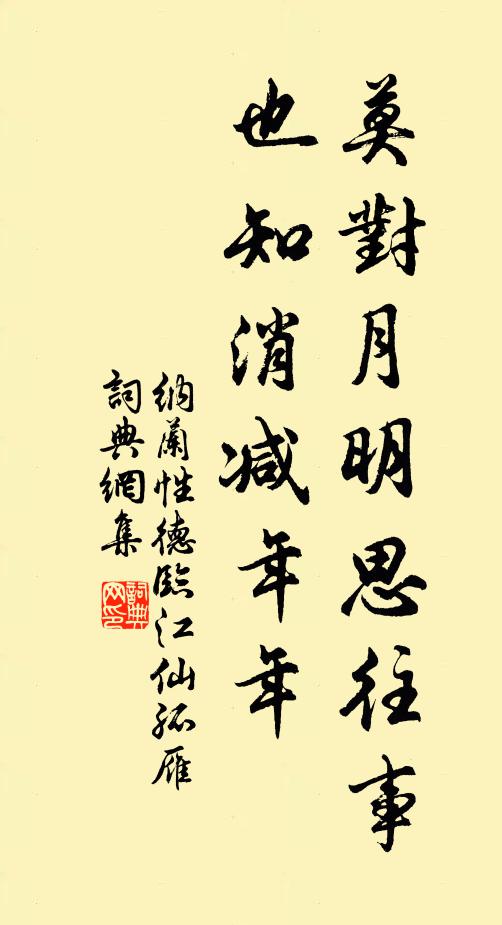 莫對月明思往事
也知消減年年
納蘭性德臨江仙孤雁
詞典網集
詞典
网印